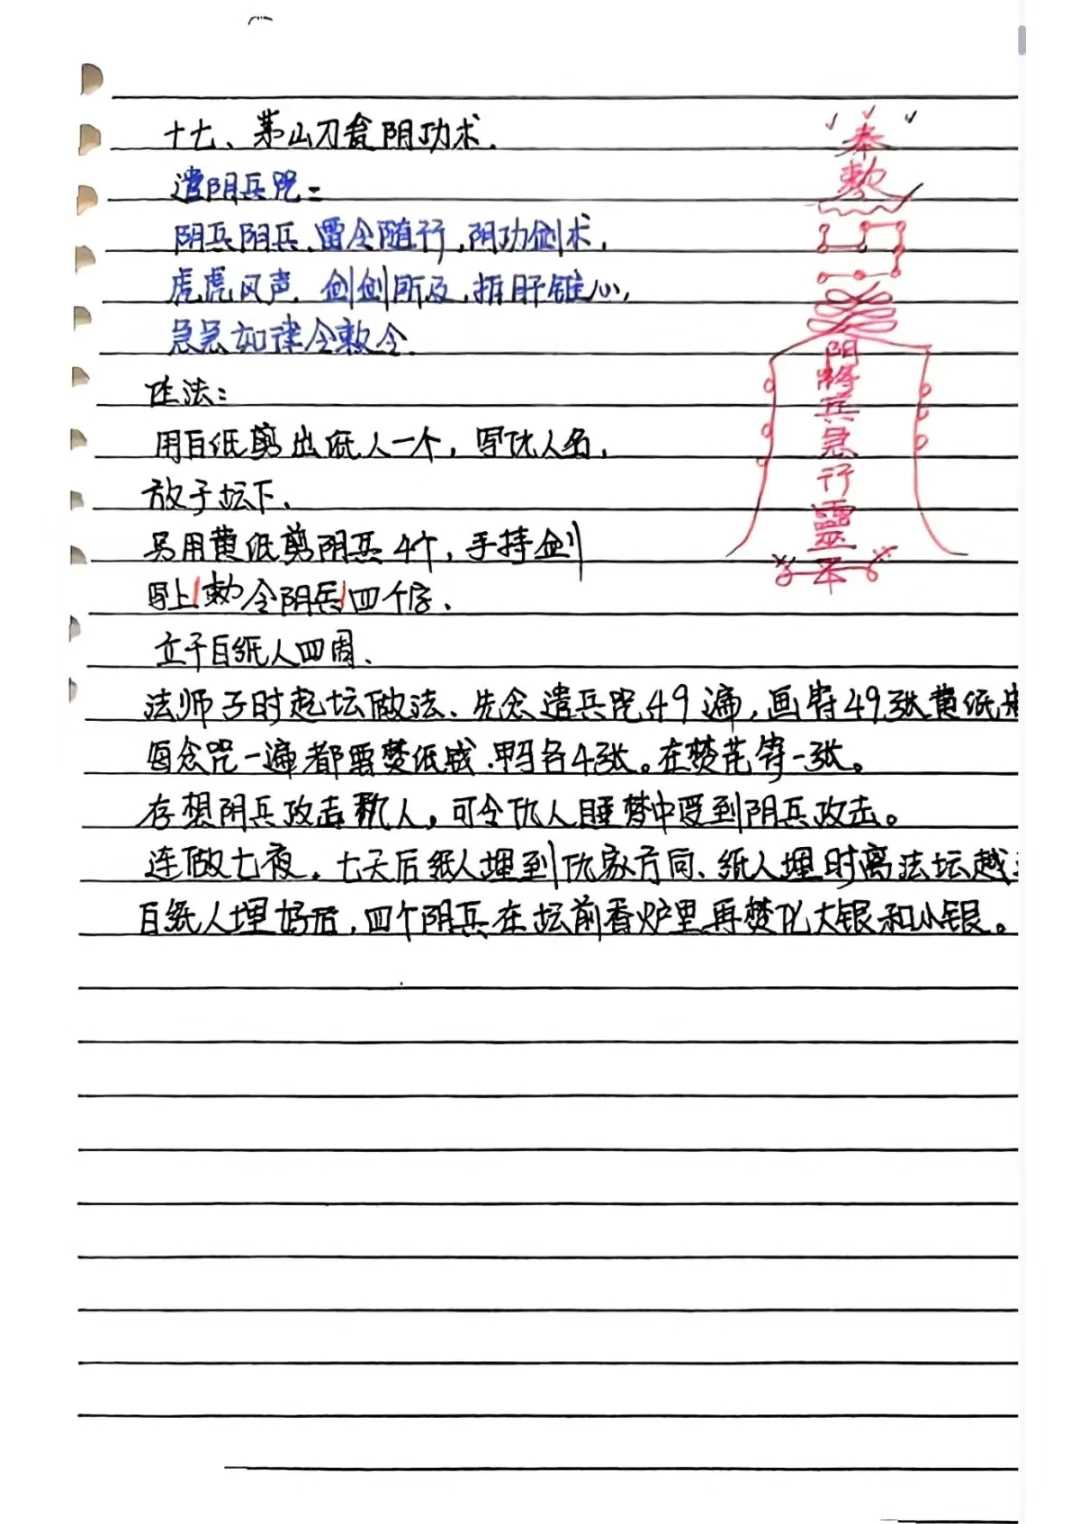 十七、茅山刀仓阴功术.
遣阴兵咒:
阴兵阴兵.雷令随行,阴功剑术,
虎虎风声.剑剑所及,拆肝锥心,
急急如律令敕令.
法:
用白纸剪出纸人一个,写仇人名,
放于坛下、
另用黄纸剪阴兵4个,手持剑
写上敕令阴兵四个字、
立于白纸人四周、
法师子时起坛做法、先念遣兵咒49遍,画符49张黄纸
每念咒一遍都要焚纸钱.各4张。在焚符一张。
存想阴兵攻击敌人,可令仇人睡梦中受到阴兵攻击。
连做七夜,七天后纸人埋到仇家方向、纸人埋时离法坛越
白纸人埋好后,四个阴兵在坛前香炉里再焚化大银和小银。
奉
敕
阴
将
兵
急
行
靈